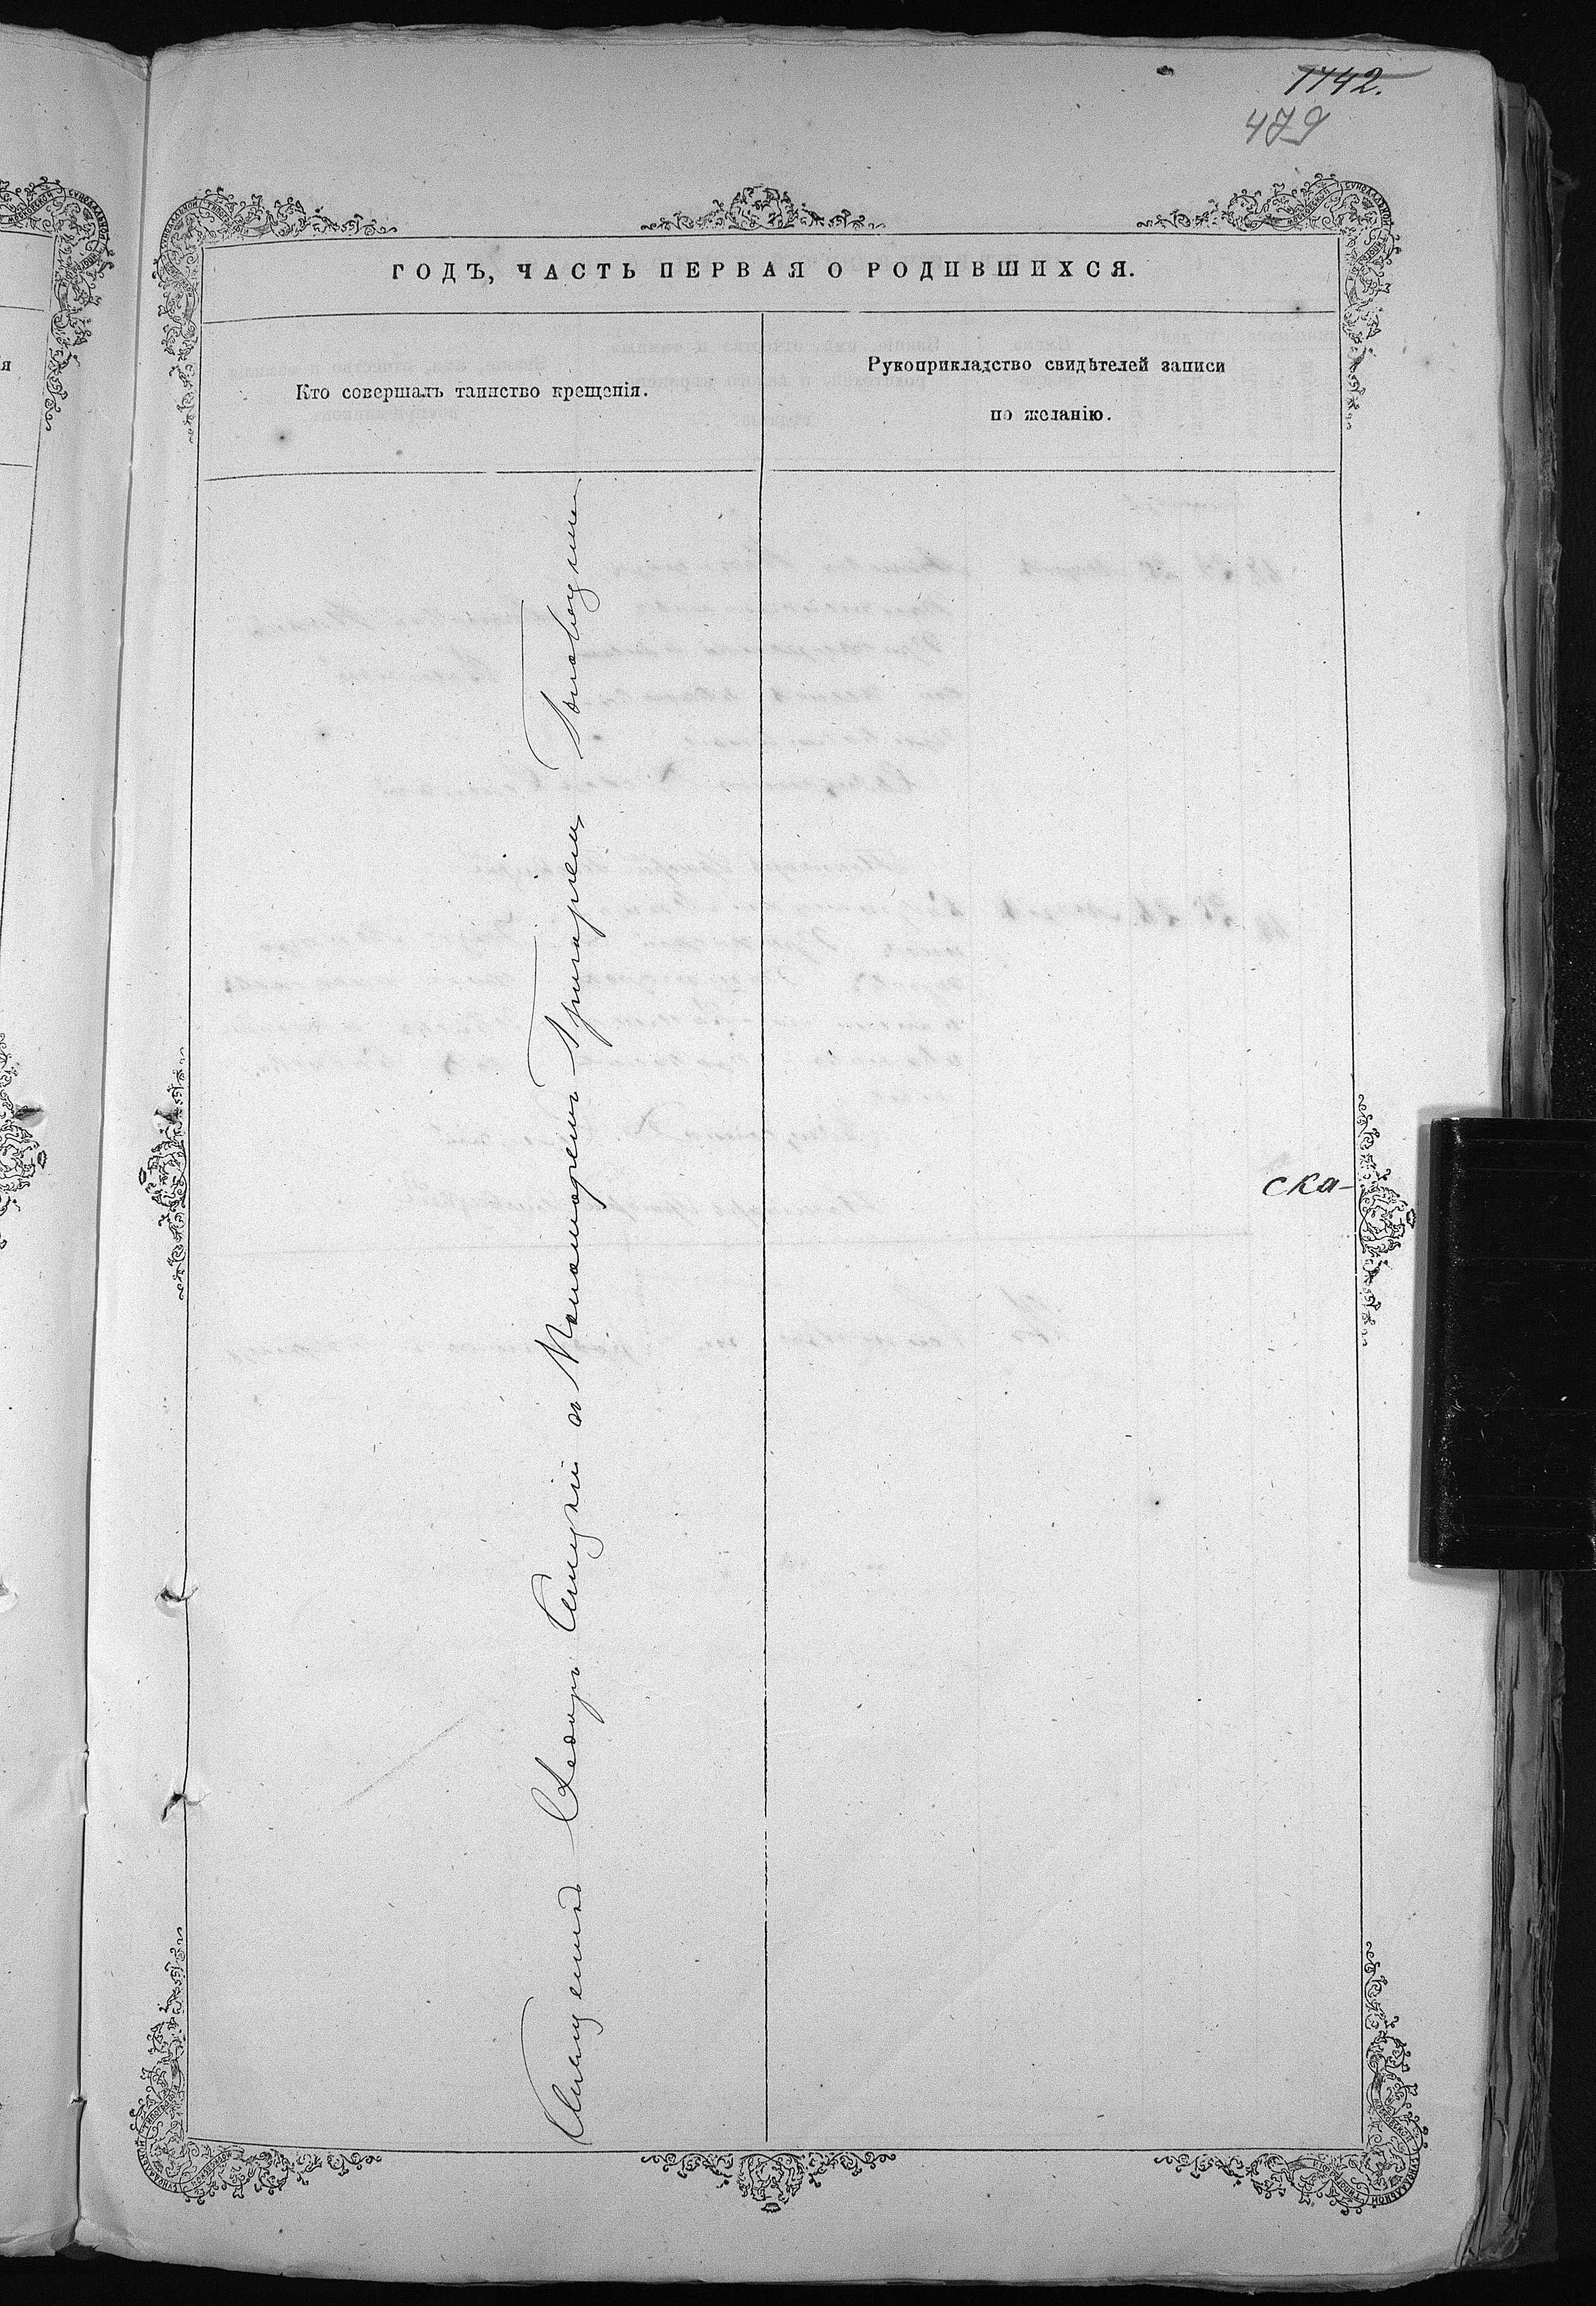 1742.
479
ГОДЪ, ЧАСТЬ ПЕРВАЯ О РОДИВШИХСЯ.
Кто совершалъ таинство крещенія.
Рукоприкладство свидѣтелей записи
по желанію.
Священникъ Ѳеодоръ Слуцкій съ Пономаремъ Григоріемъ
ска-